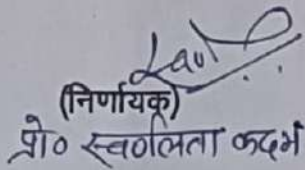 (निर्णायक)
प्रो० स्वर्णलता कदम